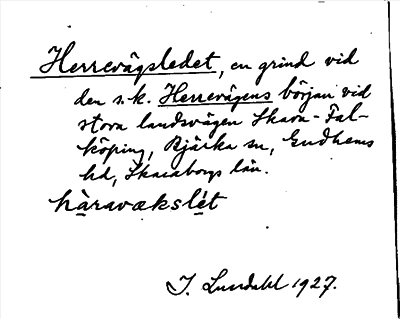 Herrevägsledet, en grind vid
den s.k. Herrevägens början vid
stora landsvägen Skara-Fal-
köping, Bjärka sn, Gudhems
hd, Skaraborgs län.
hàravækslét
J. Lundahl 1927.